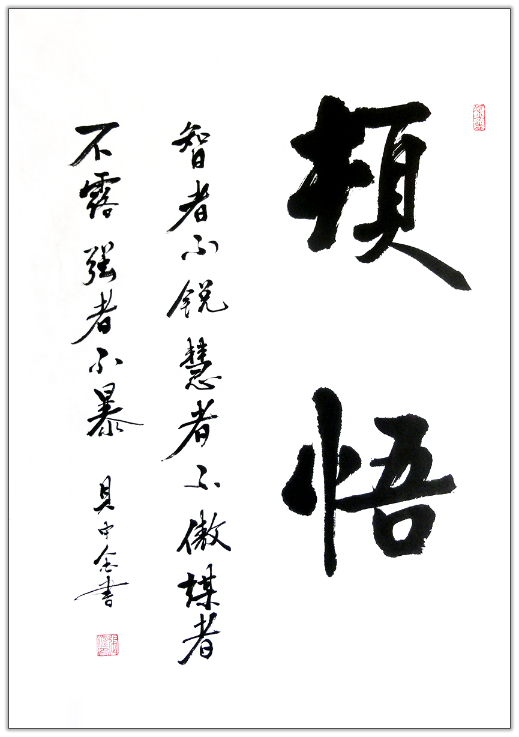 顿悟
智者不锐慧者不傲谋者
不露强者不暴
具中念书